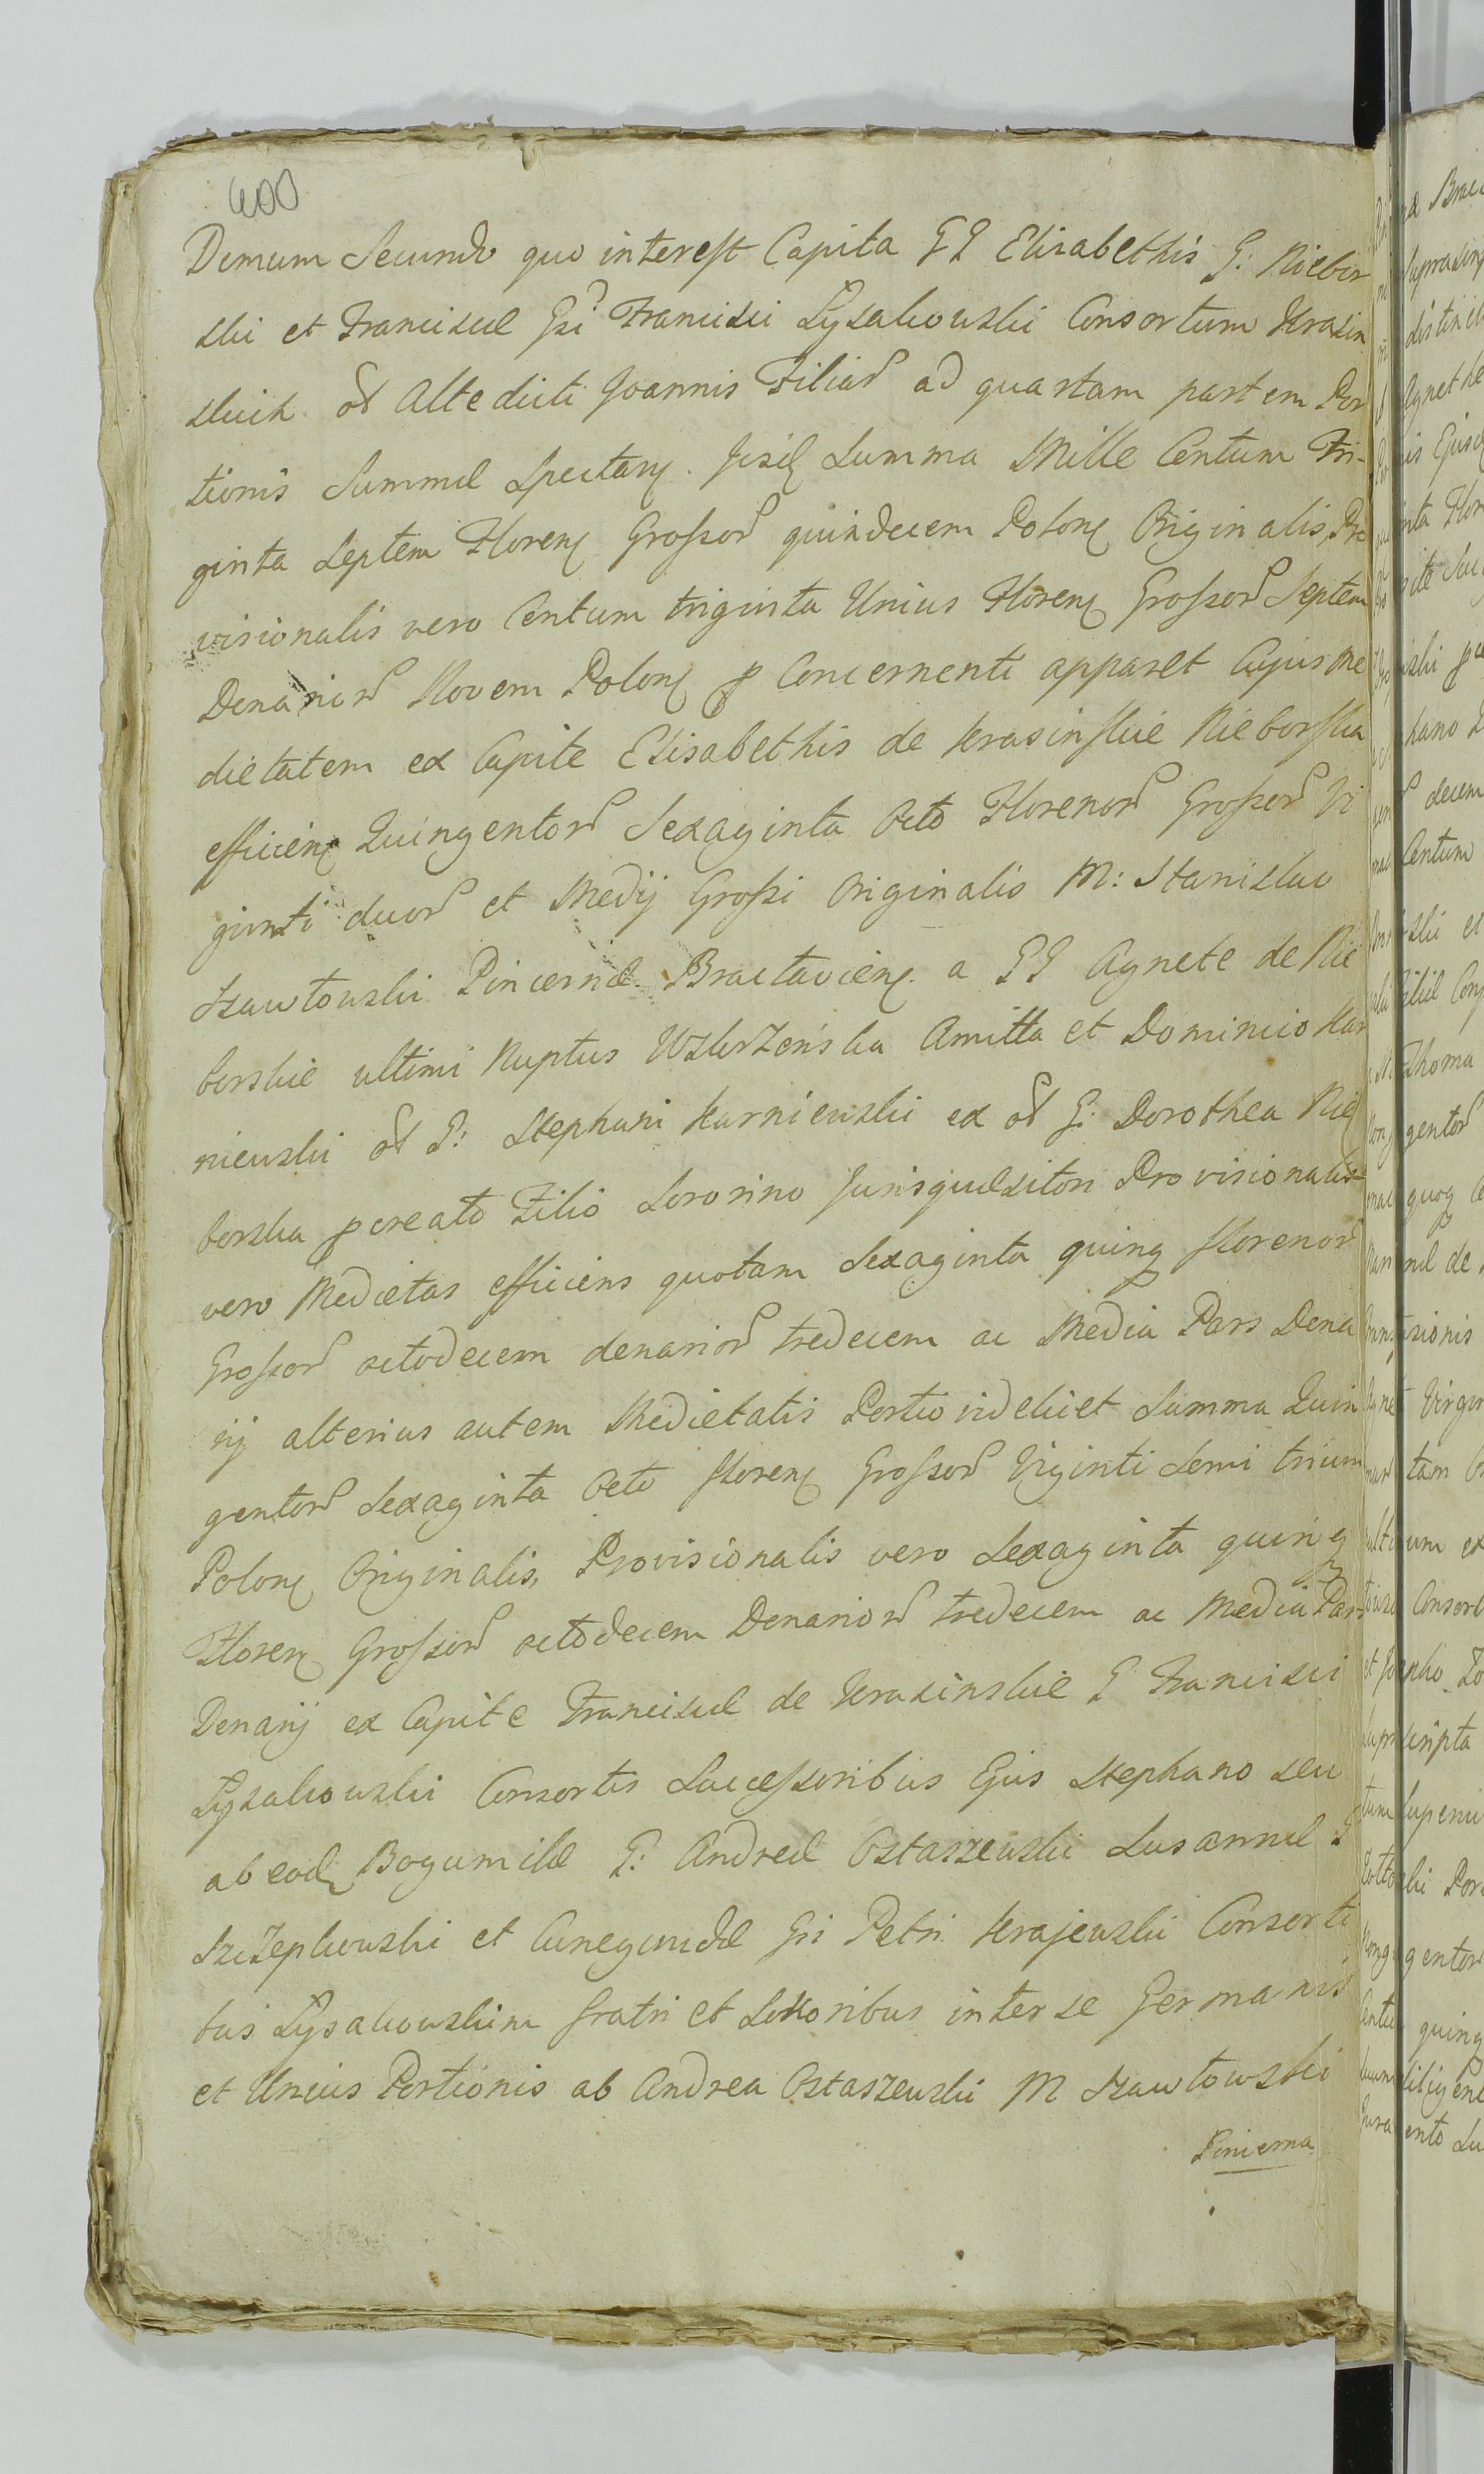 400
Demum Secundo quo interest Capita GG Elisabethis G: Niebor
ski et Franciscæ Gsi Francisci Łysakowski Consortum Krasin
skich ol Alte dicti Joannis Filiar ad quartam partem Por
tionis Summæ Spectan. Summa Mille Centum Tri-
ginta Septem Floren Grossor quindecem Polon Originalis, Pro
visionalis vero Centum triginta Unius Floren Grossor Septem
Denarior Novem Polon p Concernenti apparet Cujus Me
dietatem ex Capite Elisabethis de Krasinskie Nieborska
efficien Quingentor Sexaginta Octo Florenor Grossor Vi
ginti duor et Medij Grossi Originalis M: Stanislao
Szawłowski Pincernæ Bractavien. a GG Agnete de Nie
borskie ultimi Nuptus Wskrzeńska Amitta et Dominico Kar
niewski ol G: Stephani Karniewski ex ol G: Dorothea Nie
borska pcreato Filio Sororino Jurisquæsitori Provisionalis
vero Medietas efficiens quotam Sexaginta quinq florenor
Grossor octodecem denarior tredecem ac Media Pars Dena
rij alterius autem Medietatis Portio videlicet Summa Quin
gentor Sexaginta Octo floren Grossor Viginti Semi trium
Polon Originalis, Provisionalis vero Sexaginta quinq
Floren Grossor octodecem Denarior tredecem ac Media Pars
Denarij ex Capite Franciscæ de Krasinskie G Francisci
Łysakowski Consortis Successoribus Ejus Stephano seu
ab eod Bogumilæ G: Andreæ Ostaszewski Susannæ G
Szczepkowski et Cunegundæ Gsi Petri Krajewski Consorti
bus Łysakowskim fratri et Sororibus inter se Germanis
et Unius Portionis ab Andrea Ostaszewski M Szawłowski
Pincerna